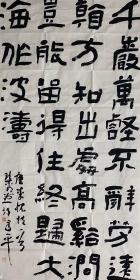 千巖萬壑不辭勞遠
看方知出處高谿澗
豈能留得住終歸大
海作波濤
唐李忱